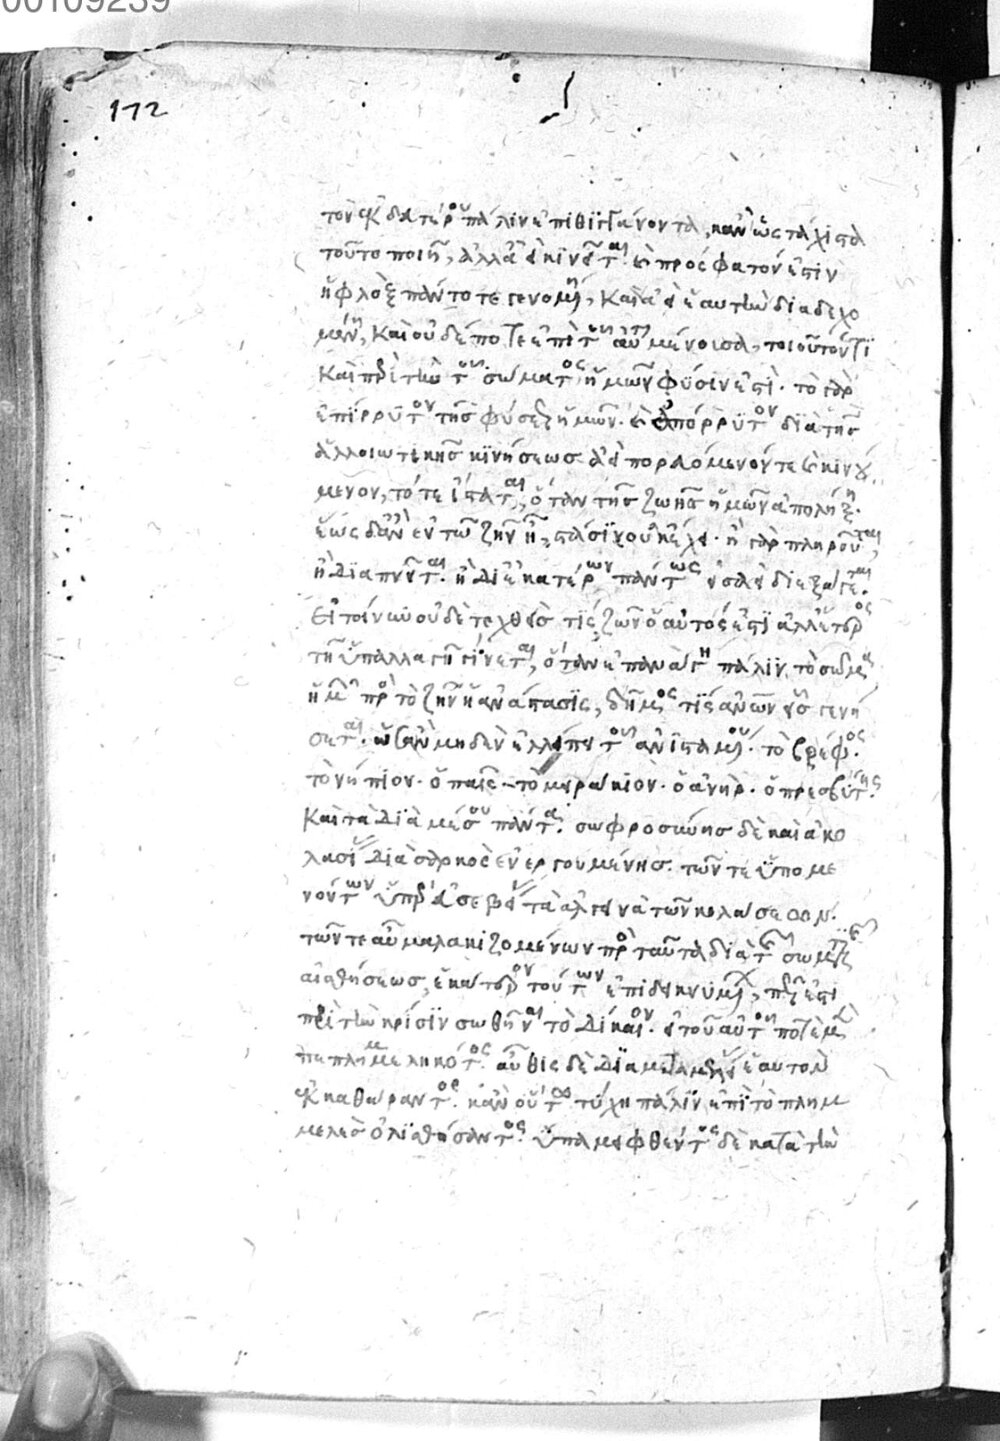 00109239
172
τὸν ἐκ δευτέρου πάλιν ἐπιθιγγάνοντα, κἂν ὡς τάχιστα
τοῦτο ποιῇ, ἀλλὰ ἀεὶ κινεῖται καὶ πρόσφατός ἐστιν
ἡ φλὸξ πάντοτε γενομένη, καὶ ἀεὶ ἑαυτὴν διαδεχο
μένη, καὶ οὐδέποτε ἐπὶ τοῦ αὐτοῦ μένουσα, τοιοῦτόν τι
καὶ περὶ τὴν τοῦ σώματος ἡμῶν φύσιν ἐστί. τὸ γὰρ
ἐπίρρυτον τῆς φύσεως ἡμῶν. καὶ ἀπόρρυτον διὰ τῆς
ἀλλοιωτικῆς κινήσεως ἀεὶ πορευόμενόν τε καὶ κινού
μενον, τότε ἵσταται, ὅταν τῆς ζωῆς ἡμῶν ἀπολήξῃ.
ἕως δ' ἂν ἐν τῷ ζῆν ᾖ, στάσιν οὐκ ἔχει. ἢ γὰρ πληροῦται,
ἢ διαπνεῖται. ἢ δι' ἑκατέρων πάντως εἰσαεὶ διεξάγεται.
Εἰ τοίνυν οὐδὲ τῇ χθές τις ζῶν ὁ αὐτός ἐστιν ἀλλ' ἕτερος
τῇ ὑπαλλαγῇ γίνεται, ὅταν ἐπανάγῃ πάλιν τὸ σῶμα
ἡμῶν πρὸς τὸ ζῆν ἡ ἀνάστασις, δῆμός τις ἀνθρώπων ὁ εἷς γενή
σεται. ὡς ἂν μηδὲν ἐλλείποι τοῦ ἀνισταμένου. τὸ βρέφος.
τὸ νήπιον. ὁ παῖς. τὸ μειράκιον. ὁ ἀνήρ. ὁ πρεσβύτης.
Καὶ τὰ διὰ μέσου πάντα. σωφροσύνης δὲ καὶ ἀκο
λασίας διὰ σαρκὸς ἐνεργουμένης. τῶν τε ὑπομε
νόντων ὑπὲρ εὐσεβείας τὰ ἀλγεινὰ τῶν κολάσεων.
τῶν τε αὖ μαλακιζομένων πρὸς ταῦτα διὰ τῆς σωματικῆς
αἰσθήσεως, ἑκατέρου τούτων ἐπιδεικνυμένου, πῶς ἐστι
παρὰ τὴν κρίσιν σωθῆναι τὸ δίκαιον. ἢ τοῦ αὐτοῦ ποτὲ μὲν
πεπλημμεληκότος. αὖθις δὲ διὰ μεταμελείας ἑαυτὸν
ἐκκαθάραντος. κἂν οὕτως τύχῃ πάλιν ἐπὶ τὸ πλημ
μελὲς ὀλισθήσαντος. ὑπαμειφθέντος δὲ κατὰ τὴν